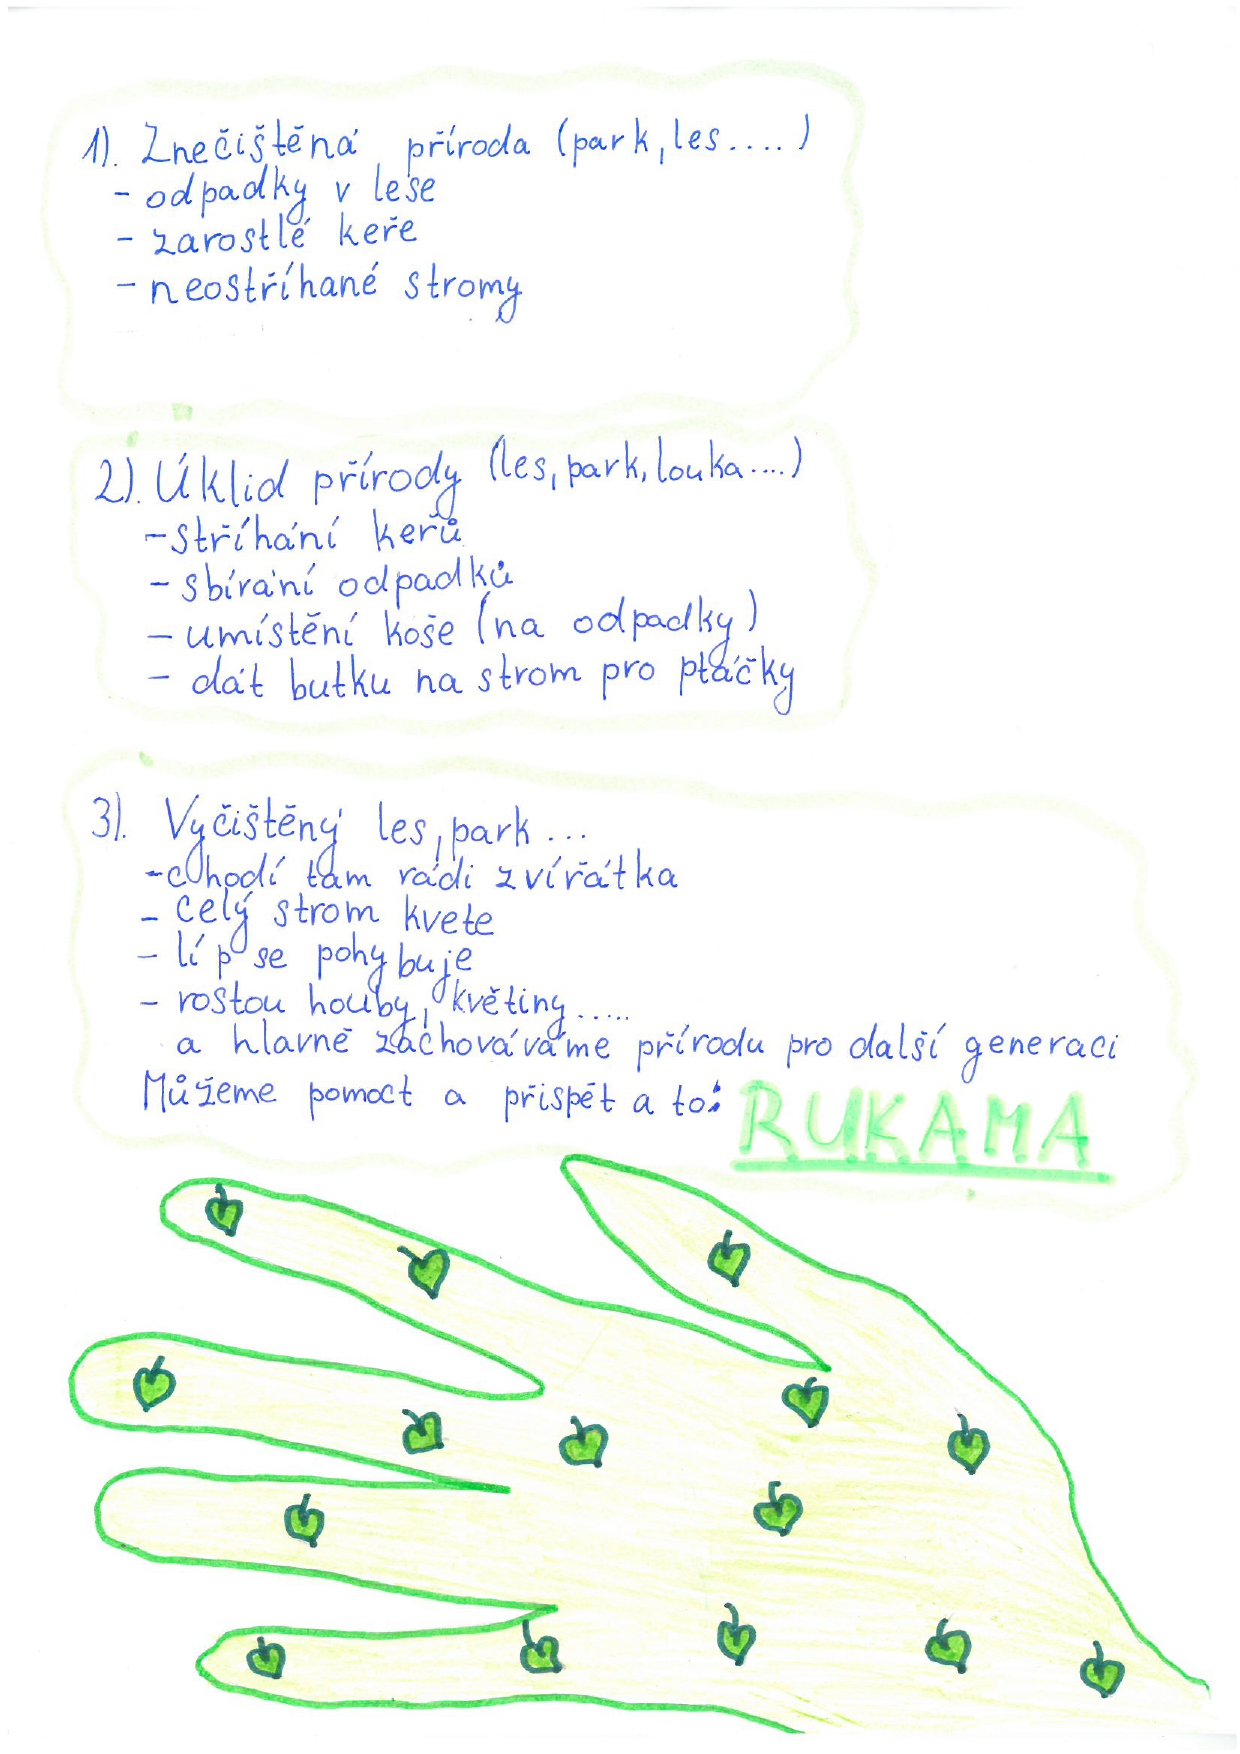 1). Znečištěná příroda (park, les....)
- odpadky v lese
- zarostlé keře
- neostříhané stromy
2). Úklid přírody (les, park, louka....)
- stříhání keřů
- sbírání odpadků
- umístění koše (na odpadky)
- dát butku na strom pro ptáčky
3). Vyčištěný les, park...
- chodí tam rádi zvířátka
- celý strom kvete
- líp se pohybuje
- rostou houby, květiny.....
a hlavně zachováváme přírodu pro další generaci
Můžeme pomoct a přispět a to: RUKAMA